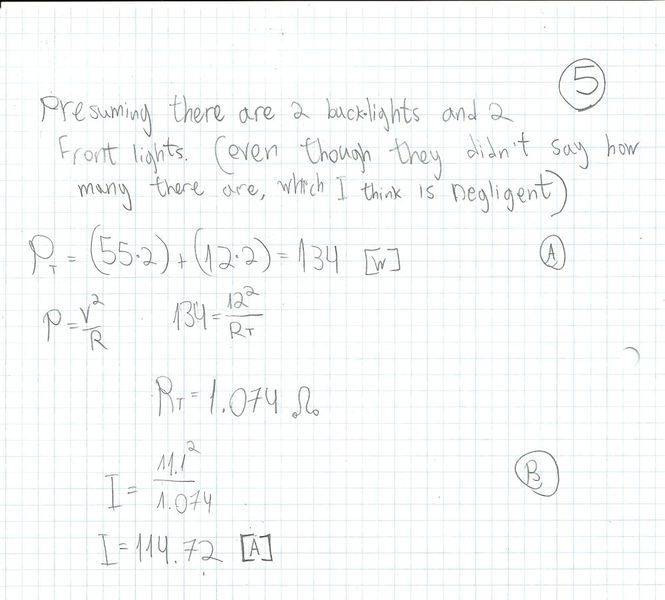 5
Presuming there are 2 back-lights and 2
Front lights. (even though they didn't say how
many there are, which I think is Negligent)
P_T = (55·2) + (12·2) = 134 [W]
A
P = V²/R   134 = 12²/R_T
R_T = 1.074 Ω
I = 11.1²/1.074
B
I = 114.72 [A]